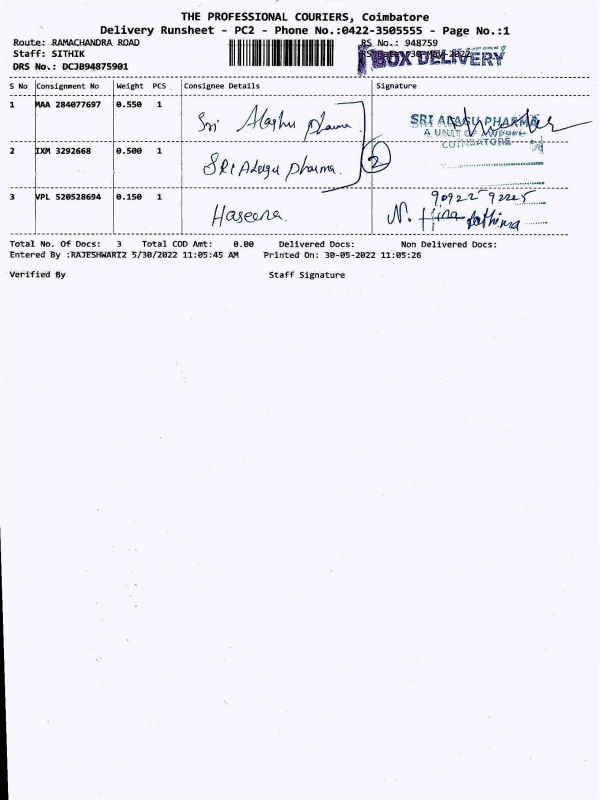 THE PROFESSIONAL COURIERS, Coimbatore
Delivery Runsheet - PC2 - Phone No.:0422-3505555 - Page No.:1
Route: RAMACHANDRA ROAD RS No.: 948759
Staff: SITHIK 30-May-2022
BOX DELIVERY
DRS No.: DCJB94875901
S No Consignment No Weight PCS Consignee Details Signature
1 MAA 284077697 0.550 1 Sri Alaghu pharma
SRI ALAGU PHARMA
A UNIT OF
COIMBATORE
2 IXM 3292668 0.500 1 SRI Adugu pharma. 2
3 VPL 520528694 0.150 1 Haseena.
N.
Total No. Of Docs: 3 Total COD Amt: 0.00 Delivered Docs: Non Delivered Docs:
Entered By :RAJESHWARI2 5/30/2022 11:05:45 AM Printed On: 30-05-2022 11:05:26
Verified By Staff Signature